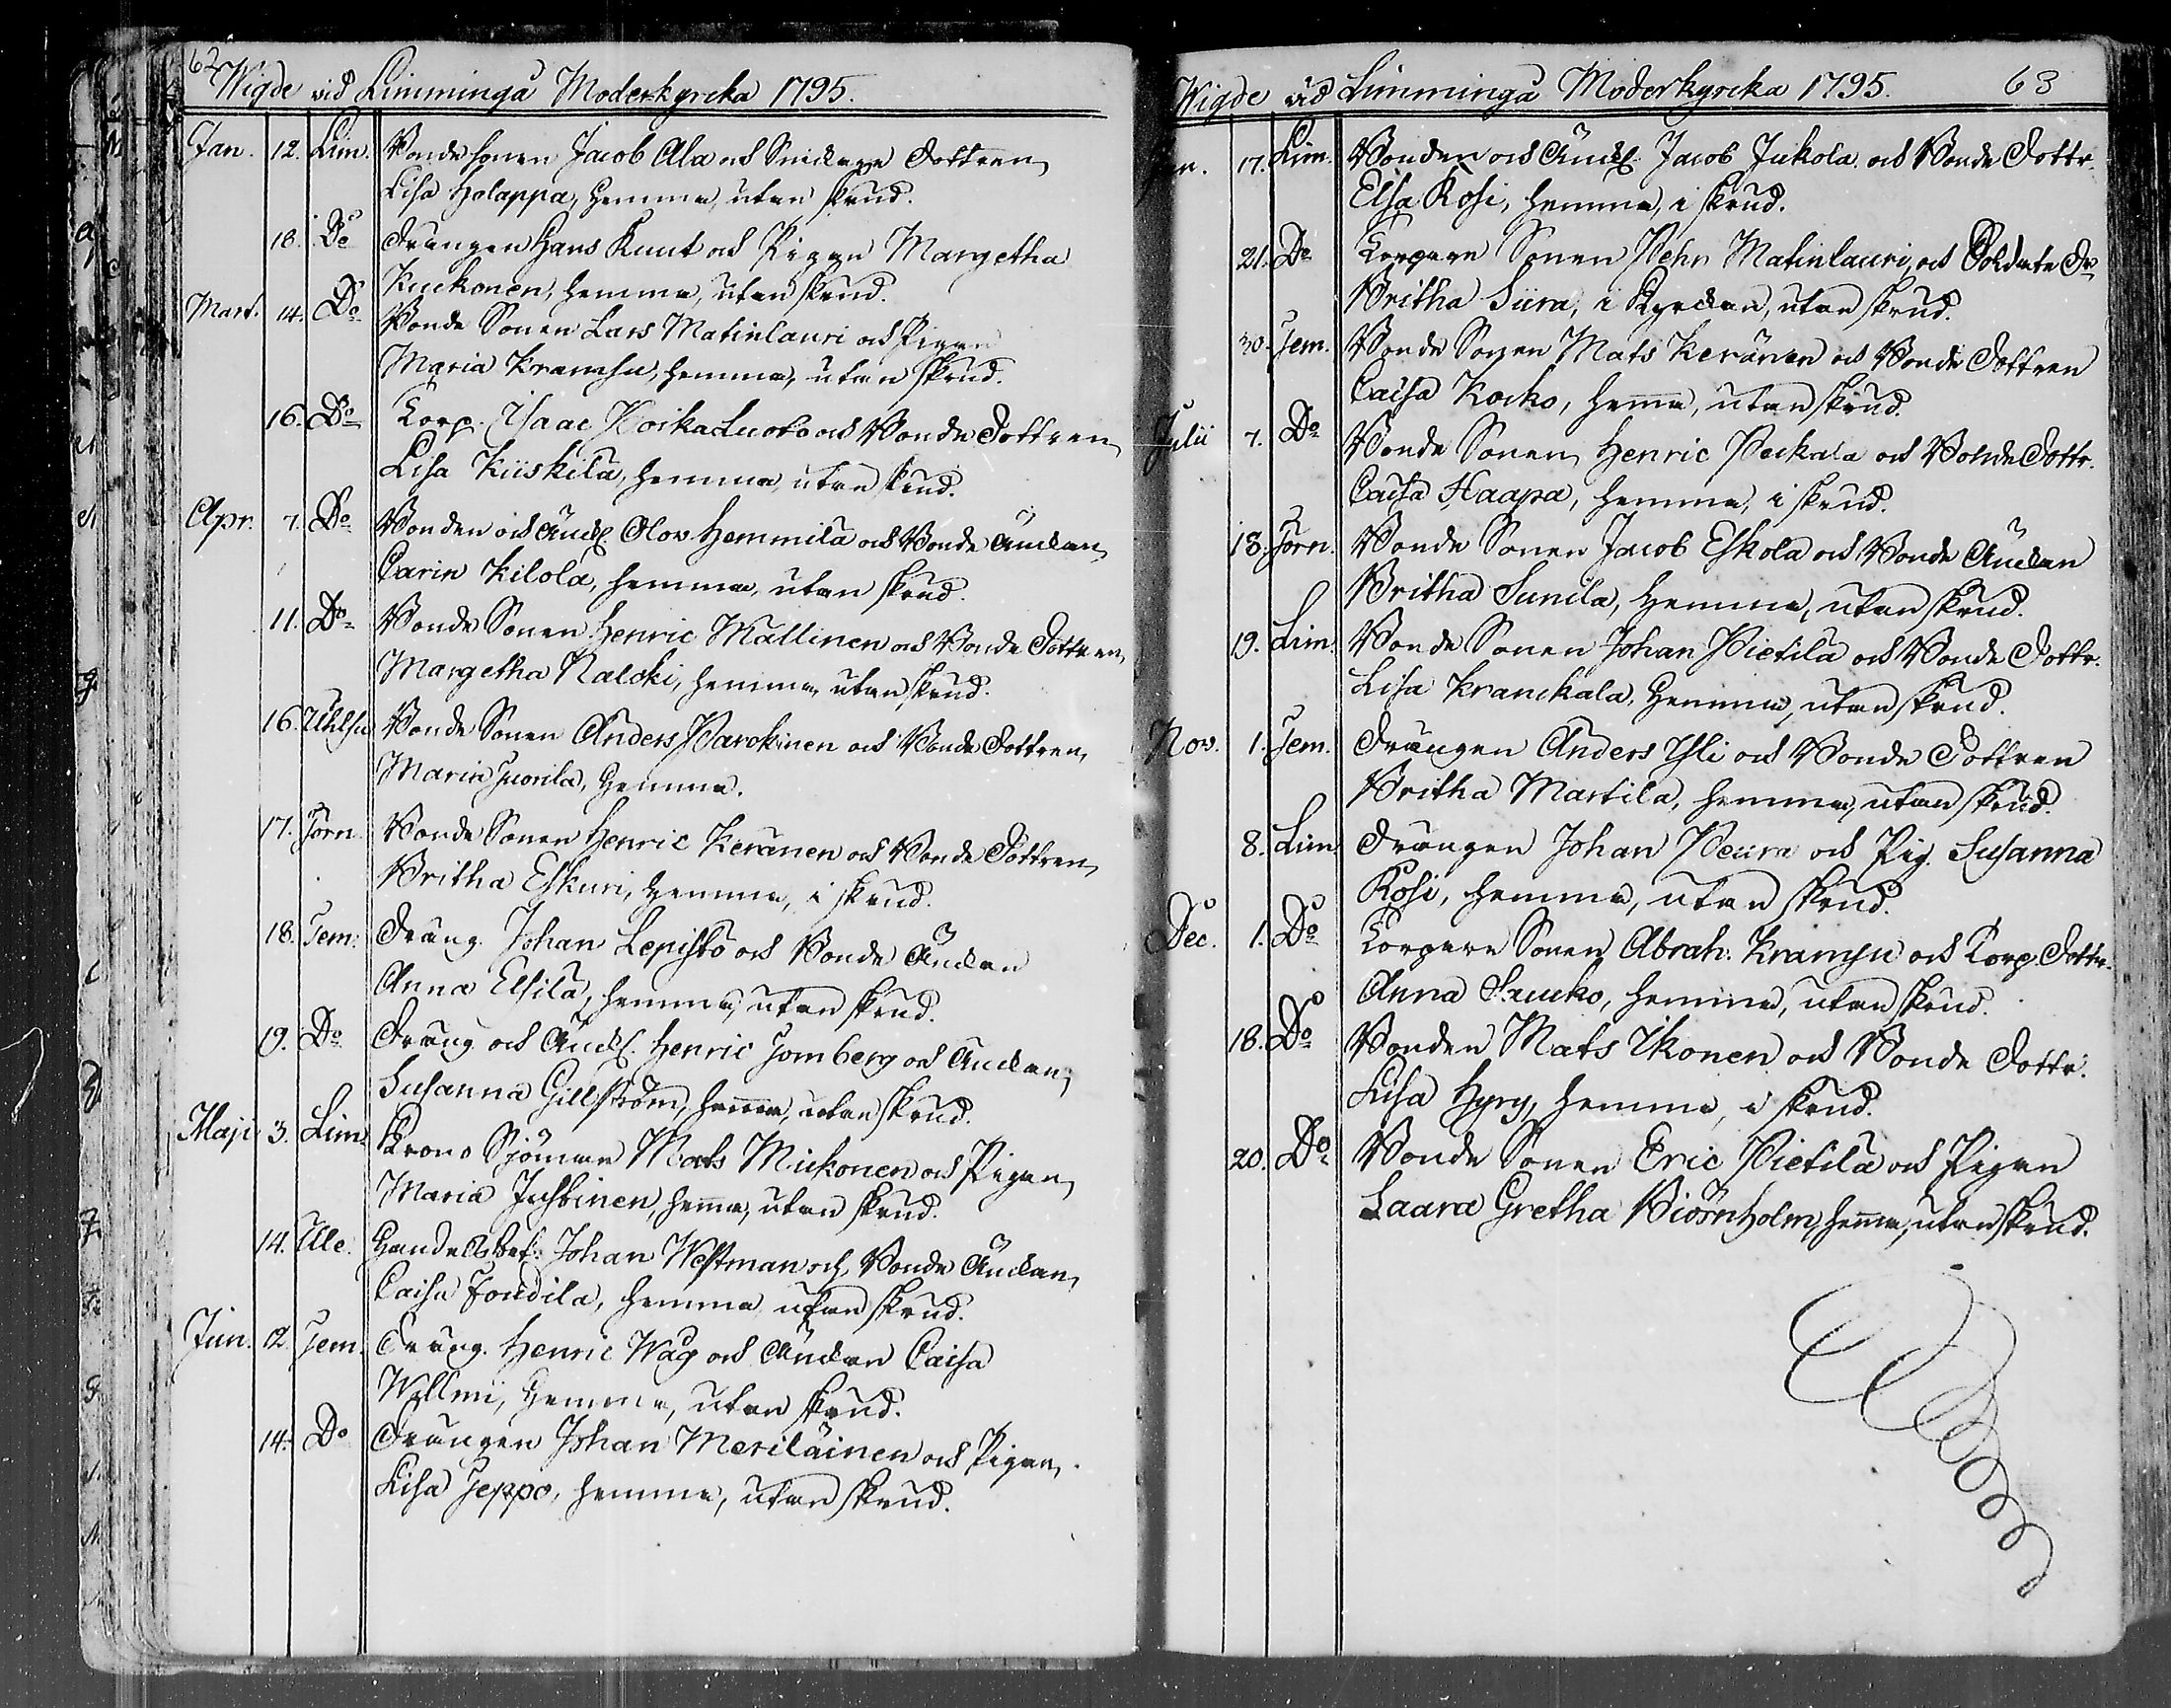 62
Wigde vid Limminga Moderkyrcka 1795.
Jan. 12. Lim. Bonde sonen Jacob Ala och Snickare Dottren
Lisa Holappa, hemma, utan skrud.
18. Do Drängen Hans Knut och Pigan Margetha
Kuckonen, hemma, utan skrud.
Mart. 14. Do Bonde Sonen Lars Matinlauri och Pigan
Maria Kramsu, hemma, utan skrud.
16. Do Torp. Isaac Koskaluoto och Bonde Dottren
Lisa Kiiskilä, hemma, utan skrud.
Apr. 7. Do Bonden och Änkl. Olov Hemmilä och Bonde Änckan
Carin Kilola, hemma, utan skrud.
11. Do Bonde Sonen Henric Mällinen och Bonde Dottren
Margetha Nalcki, hemma, utan skrud.
16. Bonde Sonen Anders Parckinen och Bonde Dottren
Maria Juonila, hemma.
17. Törn. Bonde Sonen Henric Keränen och Bonde Dottren
Britha Eskuri, hemma, i skrud.
18. Tem. Dräng. Johan Lepistö och Bonde Änckan
Anna Elsilä, hemma, utan skrud.
19. Do Dräng och Änkl. Henric Jomberg och Änckan
Susanna Gillström, hemma, utan skrud.
Maji 3. Lim. Krono Sjöman Mats Mickonen och Pigan
Maria Juhbinen, hema, utan skrud.
14. Ule. Handelsbet: Johan Westman och Bonde Änckan
Caisa Foudila, hemma utan skrud.
Jun. 12 Tem. Dräng. Henric Wäg och Änckan Caisa
Wyllmi, hemma, utan skrud.
14. Do Drängen Johan Meriläinen och Pigan
Lisa Jeppo, hemma, utan skrud.
Wigde vid Limminga Moderkyrcka 1795. 63
17. Lim. Bonden och Änkl. Jacob Jukola och Bonde Dottr.
Elsa Kosi, hemma, i skrud.
21. Do Torpare Sonen Pehr Matinlauri, och Soldate Dr
Britha Siira, i Kyrckan, utan skrud.
30. Tem. Bonde Sonen Mats Keränen och Bonde Dottren
Caisa Kocko, hema, utan skrud.
Julii 7. Do Bonde Sonen Henric Peckala och Bonde Dottr.
Caisa Haapa, hemma, i skrud.
13. Törn. Bonde Sonen Jacob Eskola och Bonde Änckan
Britha Sunila, hemma, utan skrud.
19. Lim. Bonde Sonen Johan Pietilä och Bonde Dottr.
Lisa Kranckala, hemma, utan skrud.
Nov. 1. Tem. Drängen Anders Yli och Bonde Dottren
Britha Martila, hemma, utan skrud.
8. Lim. Drängen Johan Peura och Pig. Susanna
Kosi, hemma, utan skrud.
Dec. 1. Do Torpare Sonen Abrah. Kramsu och Torp. Dottr.
Anna hemma, utan skrud.
18. Do Bonden Mats Ikonen och Bonde Dottr.
Lisa Hyry, hemma, i skrud.
20. Do Bonde Sonen Eric Pietilä och Pigan
Laara Gretha Biörnholm, hema, utan skrud.